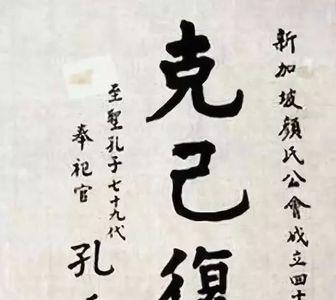 新加坡顏氏公會成立四十
克己復
至聖孔子七十九代
奉祀官
孔